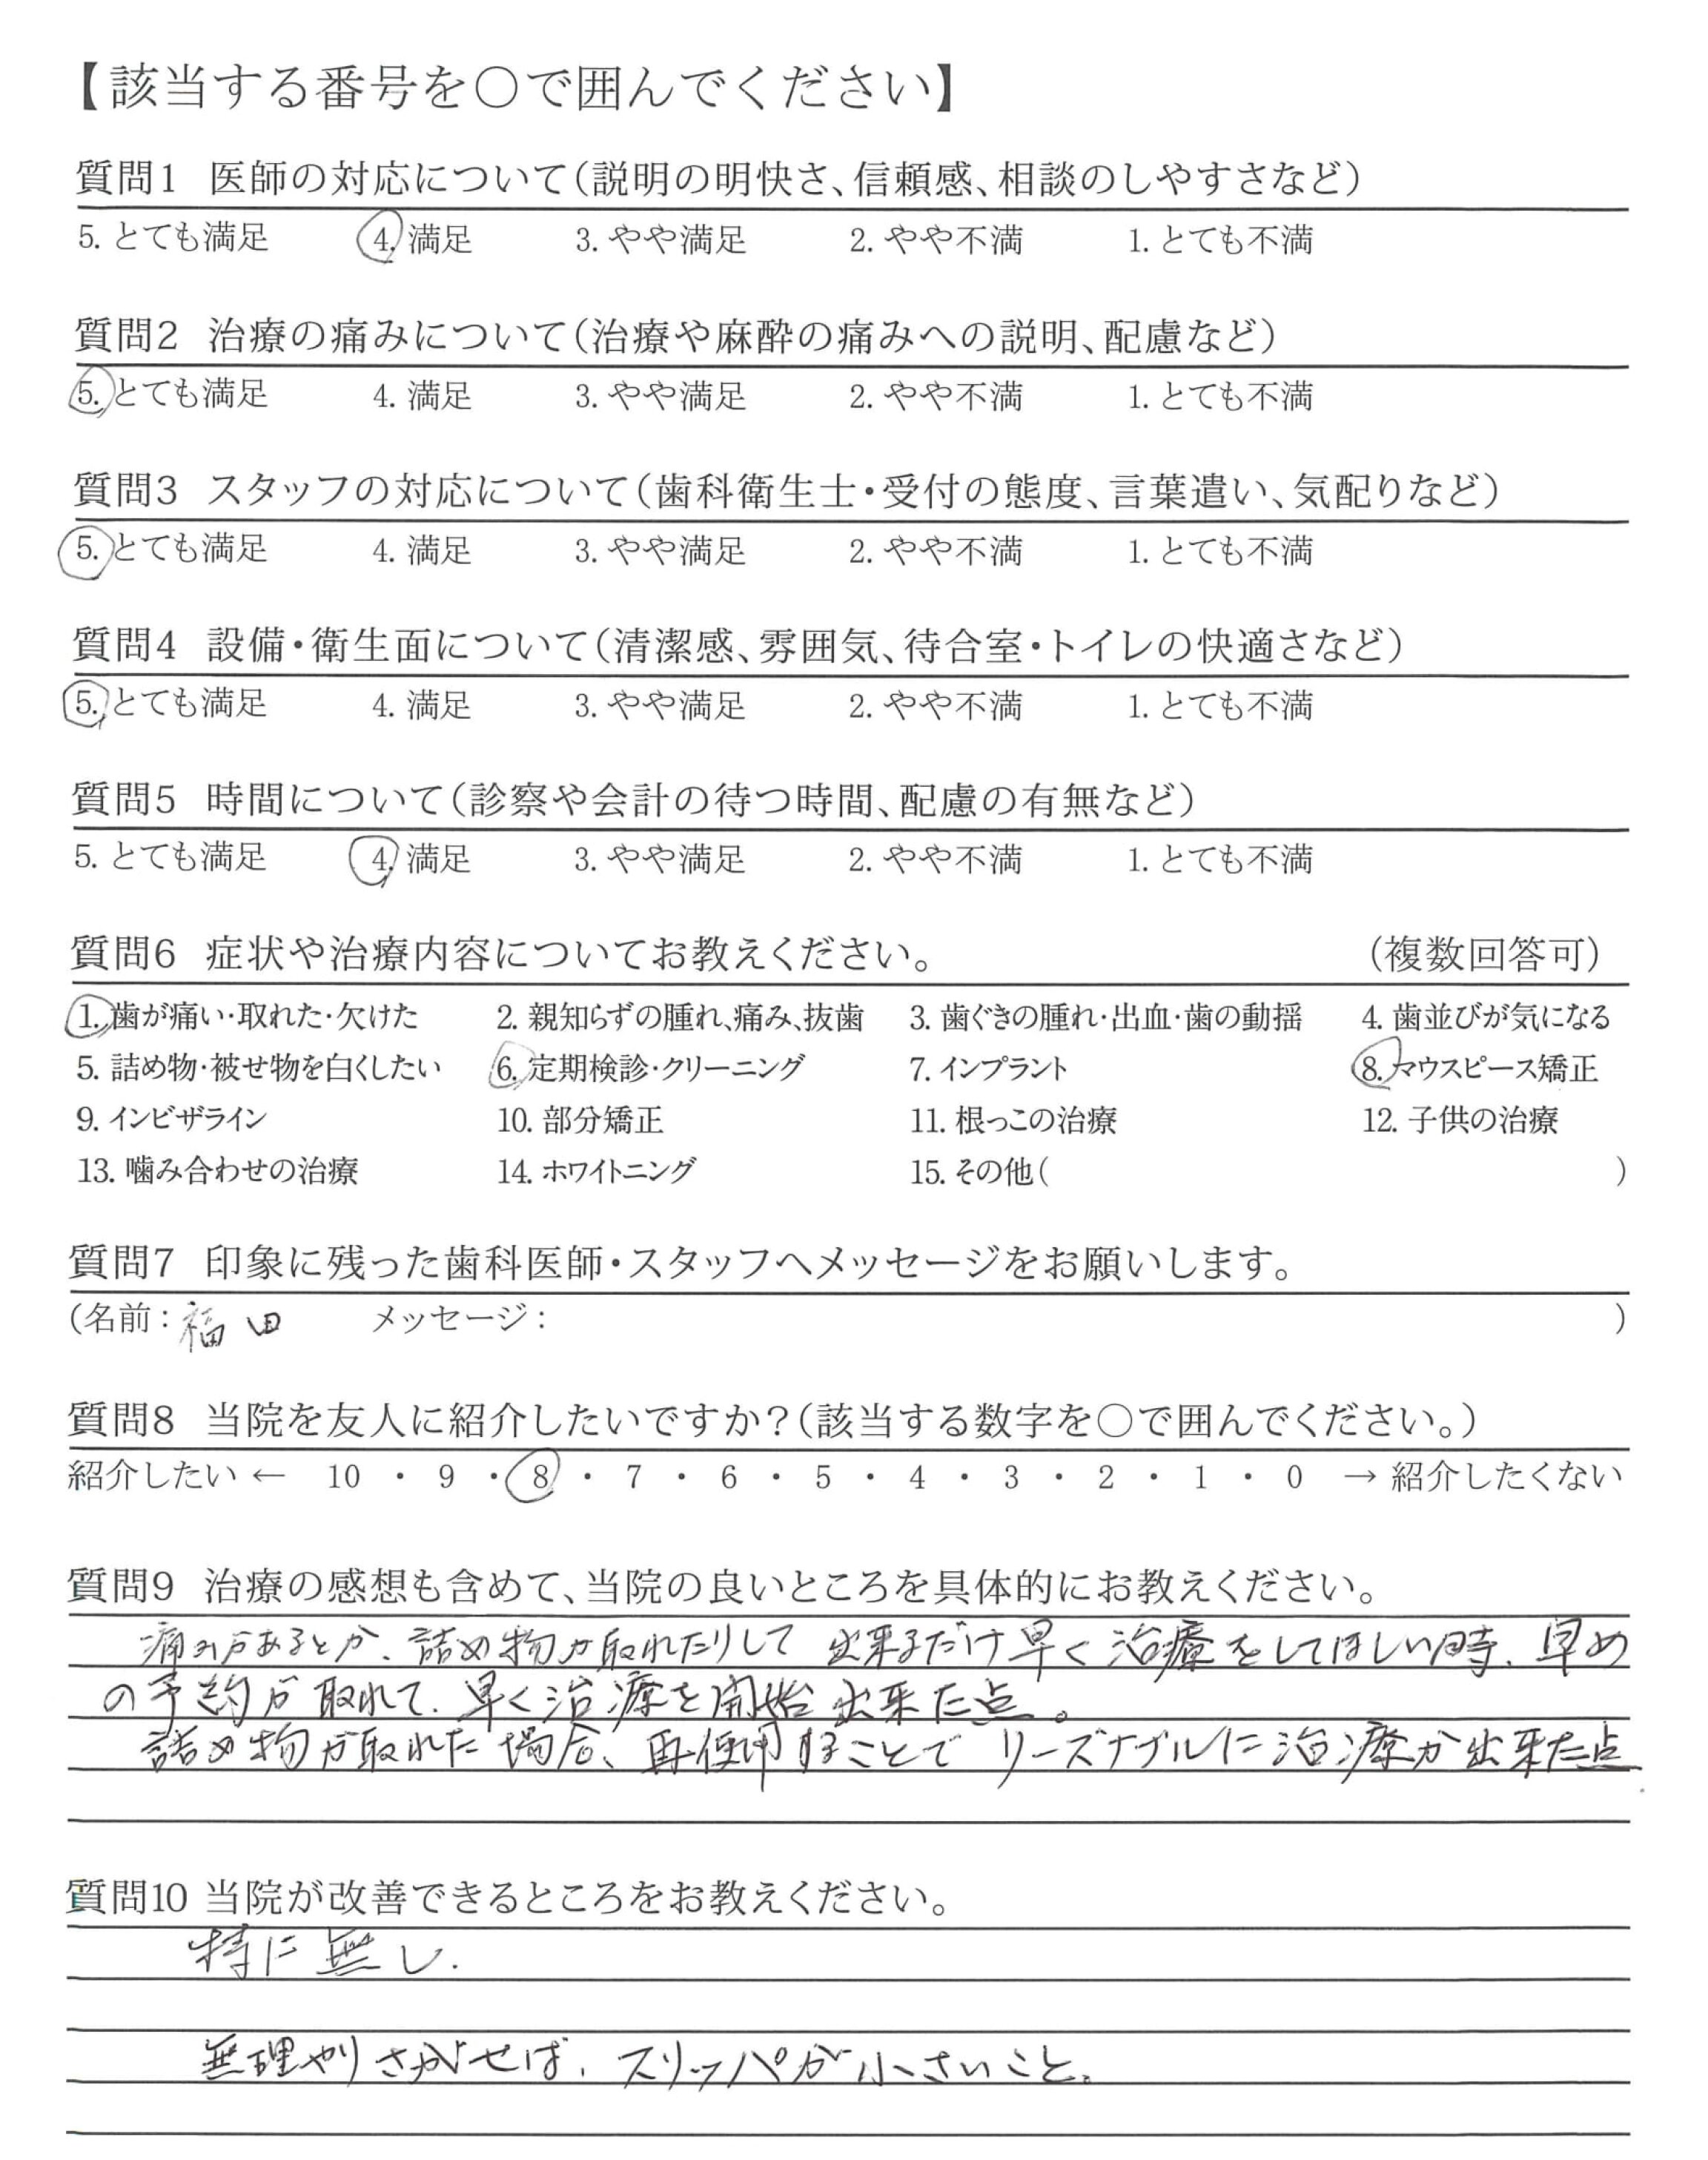 【該当する番号を○で囲んでください】
質問1 医師の対応について(説明の明快さ、信頼感、相談のしやすさなど)
5. とても満足 4. 満足 3. やや満足 2. やや不満 1. とても不満
質問2 治療の痛みについて(治療や麻酔の痛みへの説明、配慮など)
5. とても満足 4. 満足 3. やや満足 2. やや不満 1. とても不満
質問3 スタッフの対応について(歯科衛生士・受付の態度、言葉遣い、気配りなど)
5. とても満足 4. 満足 3. やや満足 2. やや不満 1. とても不満
質問4 設備・衛生面について(清潔感、雰囲気、待合室・トイレの快適さなど)
5. とても満足 4. 満足 3. やや満足 2. やや不満 1. とても不満
質問5 時間について(診察や会計の待つ時間、配慮の有無など)
5. とても満足 4. 満足 3. やや満足 2. やや不満 1. とても不満
質問6 症状や治療内容についてお教えください。 (複数回答可)
1. 歯が痛い・取れた・欠けた 2. 親知らずの腫れ、痛み、抜歯 3. 歯ぐきの腫れ・出血・歯の動揺 4. 歯並びが気になる
5. 詰め物・被せ物を白くしたい 6. 定期検診・クリーニング 7. インプラント 8. マウスピース矯正
9. インビザライン 10. 部分矯正 11. 根っこの治療 12. 子供の治療
13. 噛み合わせの治療 14. ホワイトニング 15. その他( )
質問7 印象に残った歯科医師・スタッフへメッセージをお願いします。
(名前: 福田 メッセージ: )
質問8 当院を友人に紹介したいですか?(該当する数字を○で囲んでください。)
紹介したい ← 10 ・ 9 ・ 8 ・ 7 ・ 6 ・ 5 ・ 4 ・ 3 ・ 2 ・ 1 ・ 0 → 紹介したくない
質問9 治療の感想も含めて、当院の良いところを具体的にお教えください。
痛みがあるとか、詰め物が取れたりして 出来るだけ早く治療をしてほしい時、早め
の予約が取れて、早く治療を開始出来た点。
詰め物が取れた場合、再使用することで リーズナブルに治療が出来た点.
質問10 当院が改善できるところをお教えください。
特に無し.
無理やりさがせば、スリッパが小さいこと。